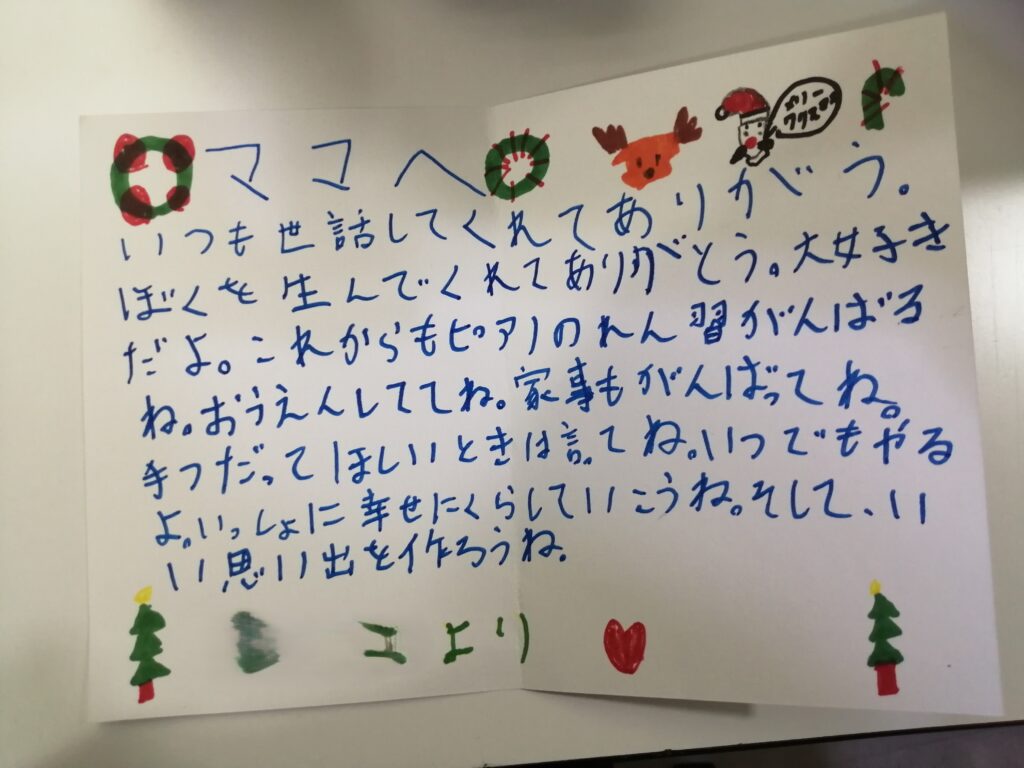 メリー
クリスマス
ママへ
いつも世話してくれてありがとう。
ぼくを生んでくれてありがとう。大好き
だよ。これからもピアノのれん習がんばる
ね。おうえんしててね。家事もがんばってね。
手つだってほしいときは言ってね。いつでもやる
よ。いっしょに幸せにくらしていこうね。そして、い
い思い出を作ろうね。
より